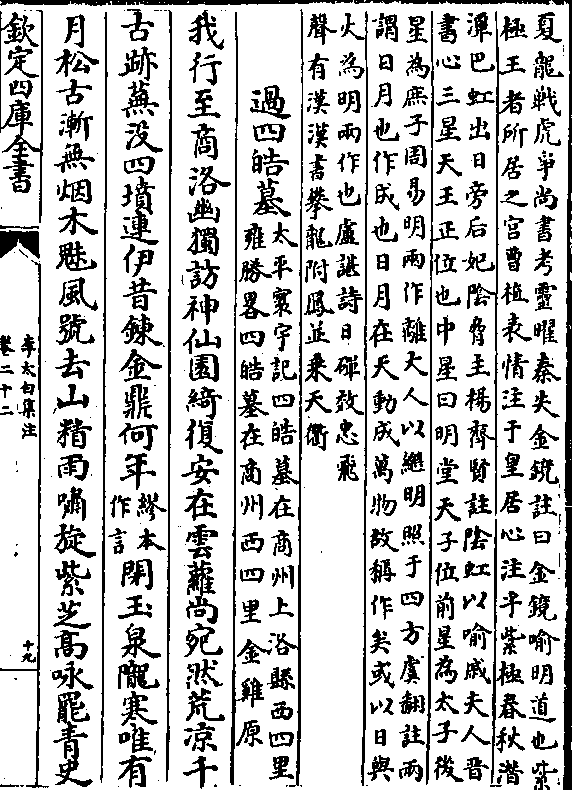 夏龍戰虎爭尚書考靈曜秦失金鏡註曰金鏡喻明道也紫
極王者所居之宫曹植表情注于皇居心注乎紫極春秋潜
潭巴虹出日旁后妃陰脅王楊齊賢註陰虹以喻戚夫人晉
書心三星天王正位也中星曰明堂天子位前星為太子後
星為庶子周易明兩作離大人以繼明照于四方虞翻註兩
謂日月也作成也日月在天動成萬物故稱作矣或以日與
火為明兩作也盧諶詩日磾效忠飛
聲有漢漢書攀龍附鳳並乗天衢
過四皓墓太平寰宇記四皓墓在商州上洛縣西四里
雍勝畧四皓墓在商州西四里金雞原
我行至商洛幽獨訪神仙園綺復安在雲蘿尚宛然荒凉千
古跡蕪没四墳連伊昔鍊金鼎何年繆本
作言閉玉泉隴寒唯有
月松古漸無烟木魅風號去山精雨嘯旋紫芝高咏罷青史
欽定四庫全書
李太白集注
卷二十二
十九